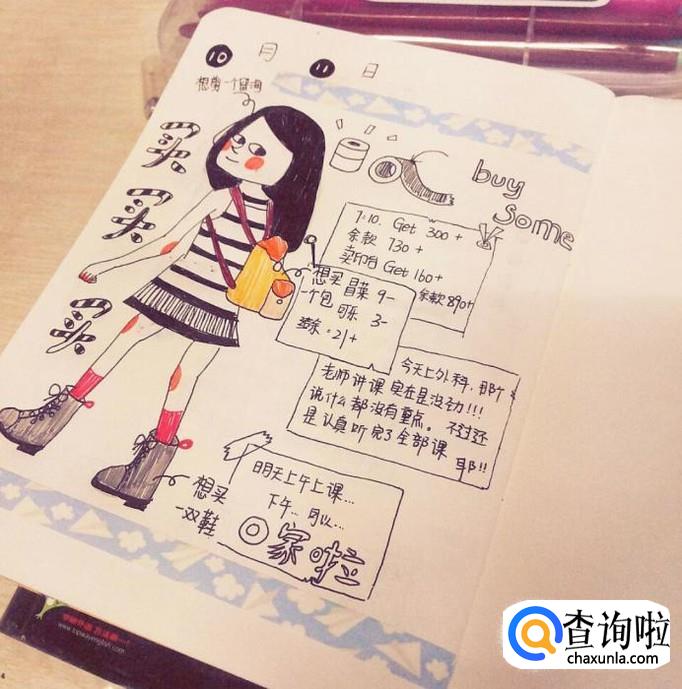 10月11日
想剪一个
买
买
买
buy
some
1:10. Get 300+
余款 130+
Get 160+
余款890+
想买 冒菜 9-
一个包 可乐 3-
21+
今天上外科,那个
老师讲课实在是没劲!!!
说什么都没有重点。不过还
是认真听完了全部课
耶!!
明天上午上课...
下午...可以...
回家啦
想买
一双鞋
www.topwayenglish.com
查询啦
chaxunla.com